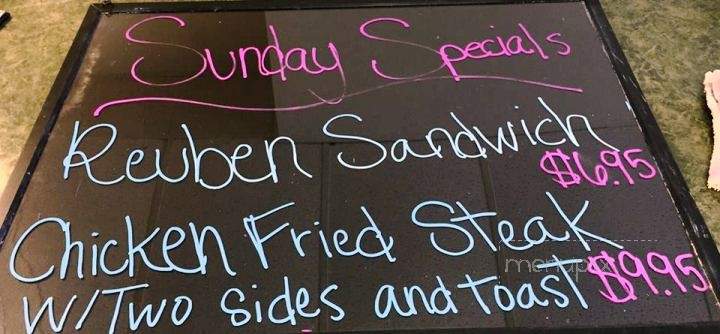 Sunday Specials
Reuben Sandwich
$6.95
Chicken Fried Steak
W/Two sides and toast $9.95
menupix